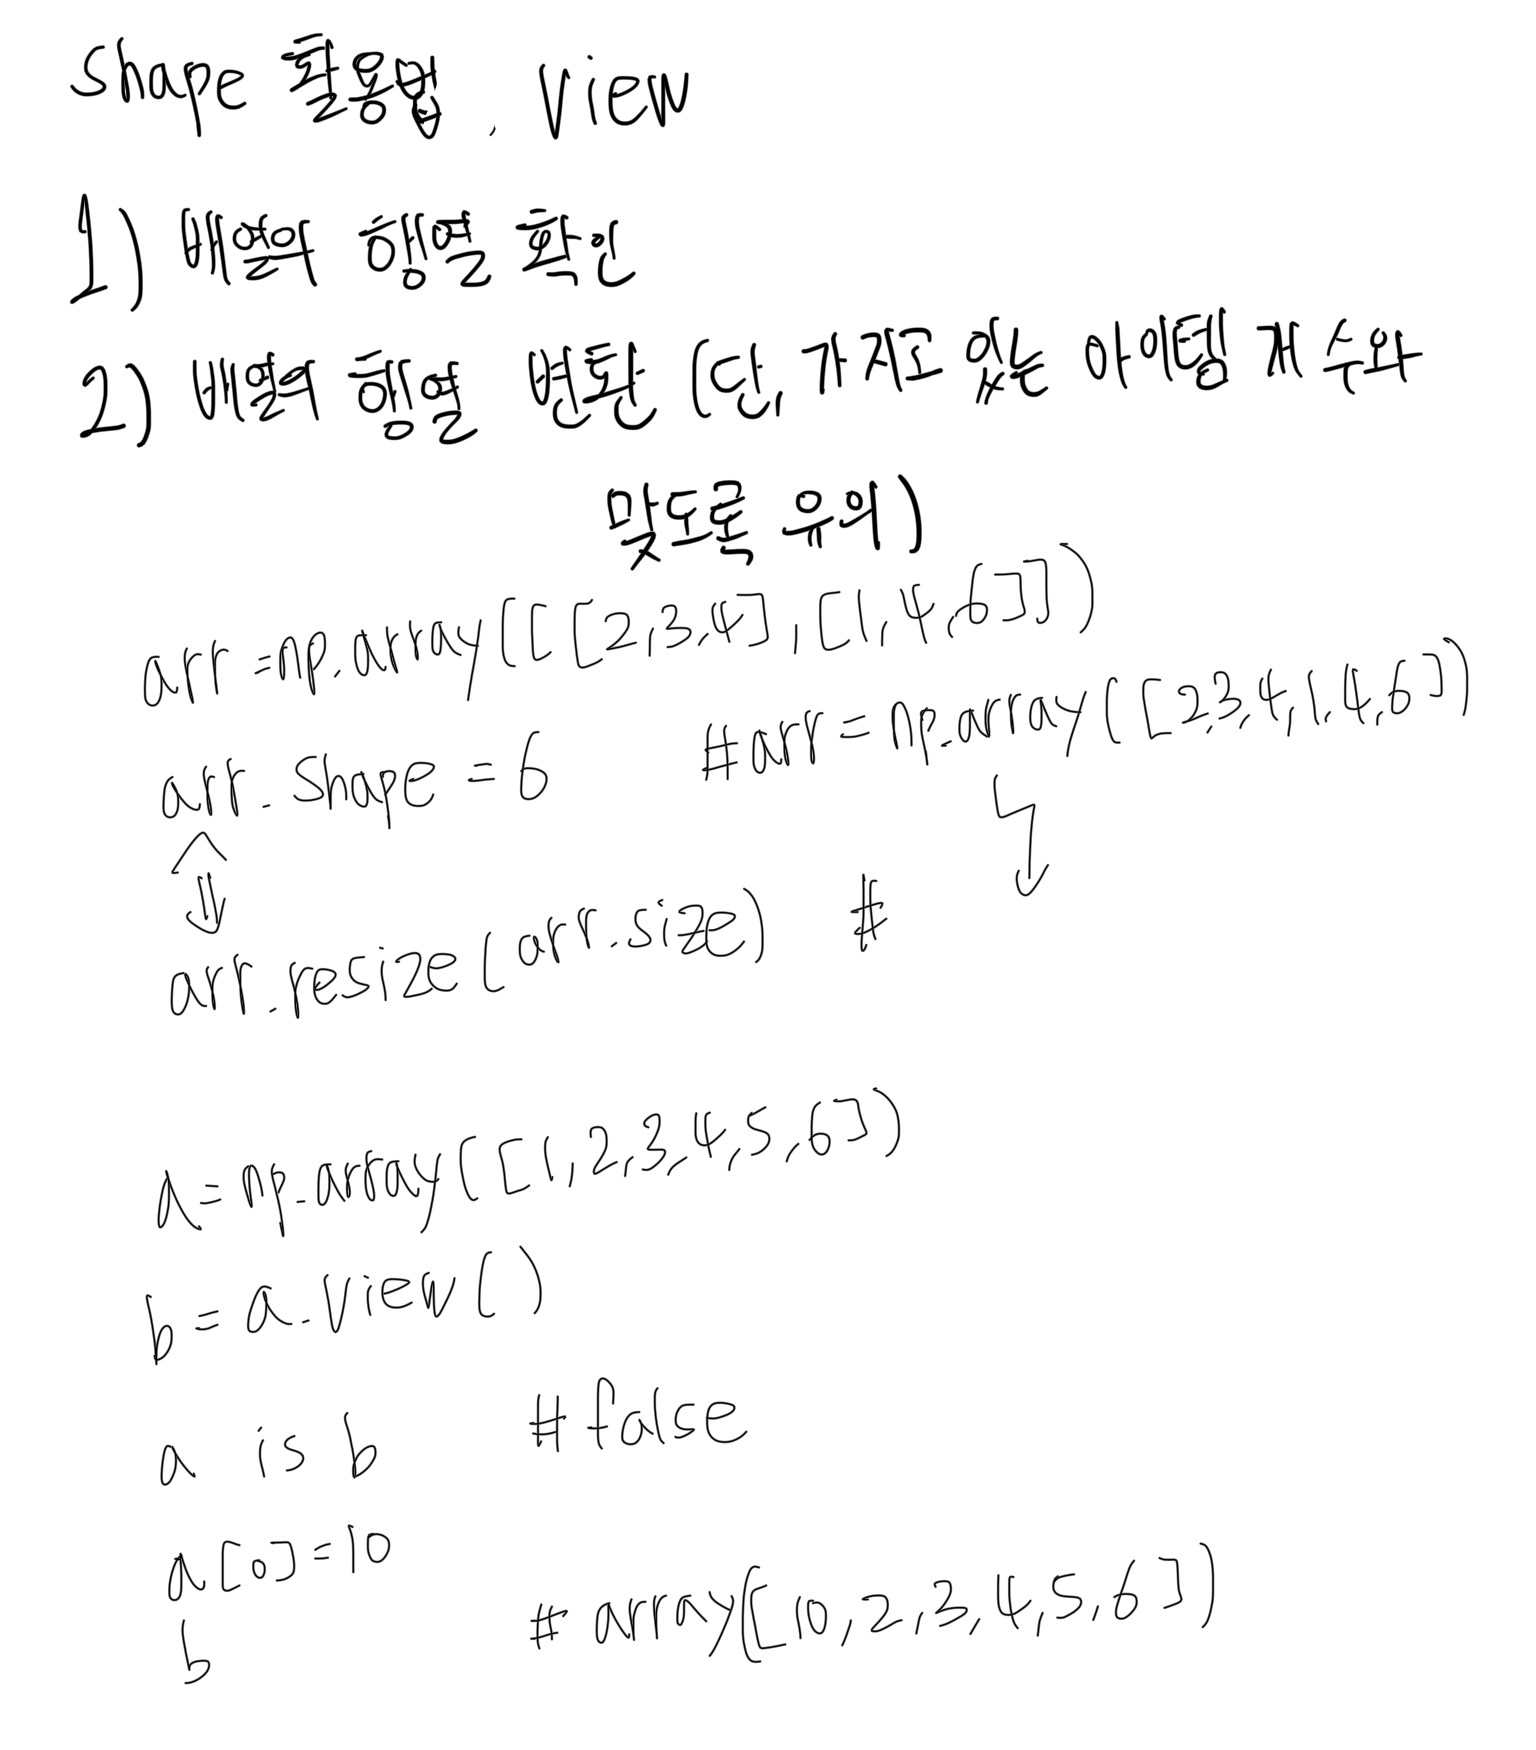 shape 활용법, View
1) 배열의 행열 확인
2) 배열의 행열 변환 (단, 가지고 있는 아이템 개수와
맞도록 유의)
arr=np.array([[2,3,4],[1,4,6]])
arr.shape = 6 #arr = np.array([2,3,4,1,4,6])
arr.resize(arr.size) #
a=np.array([1,2,3,4,5,6])
b=a.view()
a is b #false
a[0]=10
b # array([10,2,3,4,5,6])